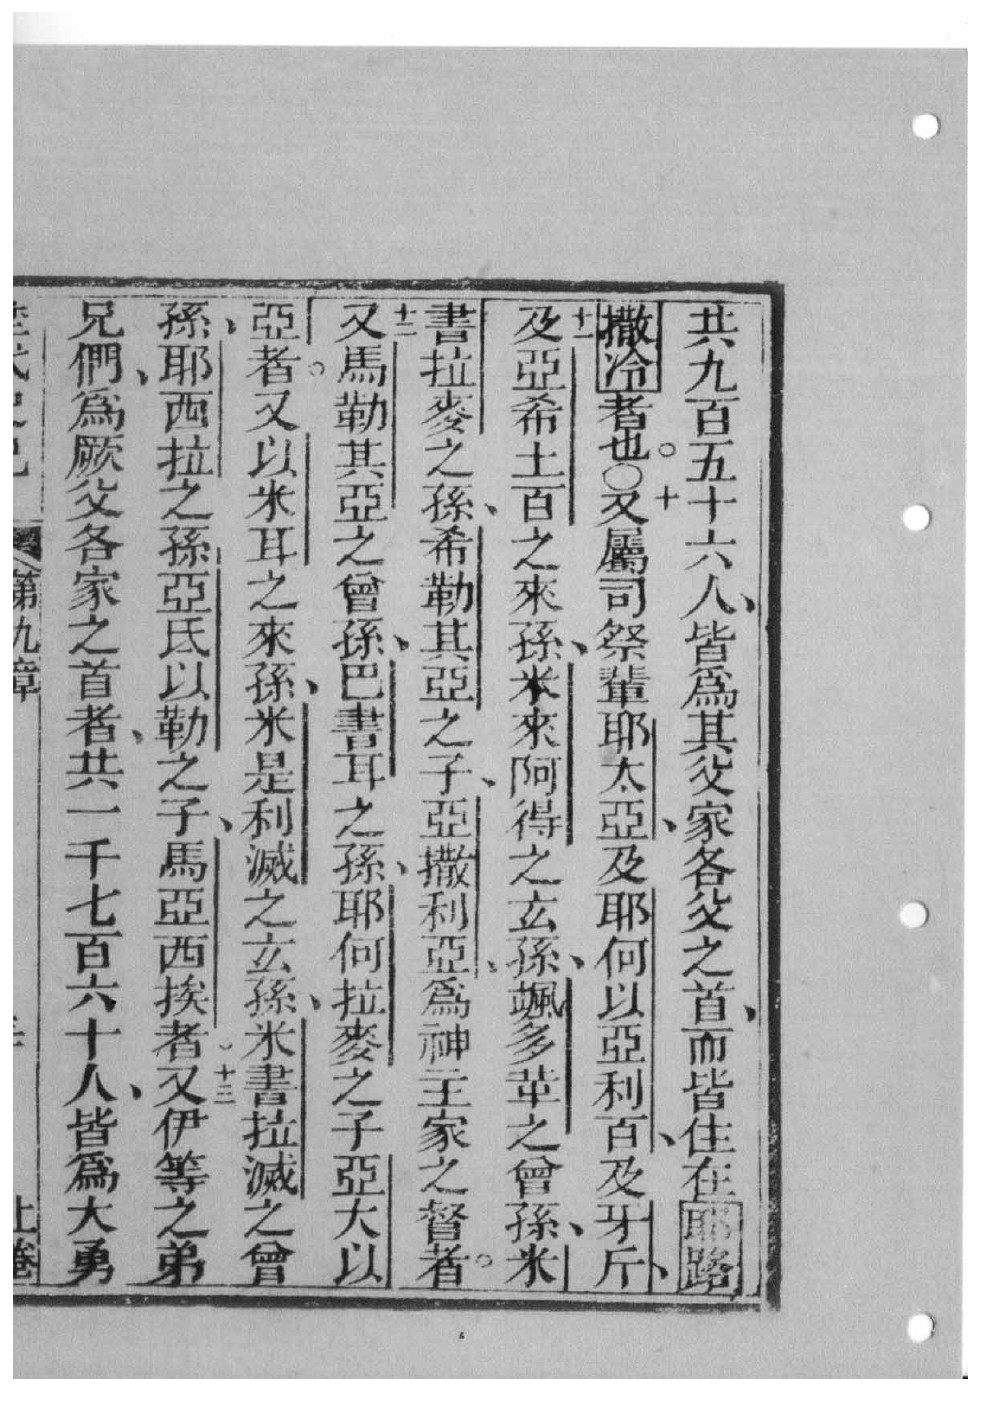 共九百五十六人、皆爲其父家各父之首、而皆住在耶路
撒冷者也。○十又屬司祭輩耶太亞、及耶何以亞利百、及牙斤、
十一及亞希土百之來孫、米來阿得之玄孫、颯多葷之曾孫、米
書拉麥之孫、希勒其亞之子、亞撒利亞、爲神主家之督者。
十二又馬勒其亞之曾孫、巴書耳之孫、耶何拉麥之子亞大以
亞者。又以米耳之來孫、米是利滅之玄孫、米書拉滅之曾
孫、耶西拉之孫亞氐以勒之子、馬亞西挨者、十三又伊等之弟
兄們、爲厥父各家之首者、共一千七百六十人、皆爲大勇
第九章
上卷